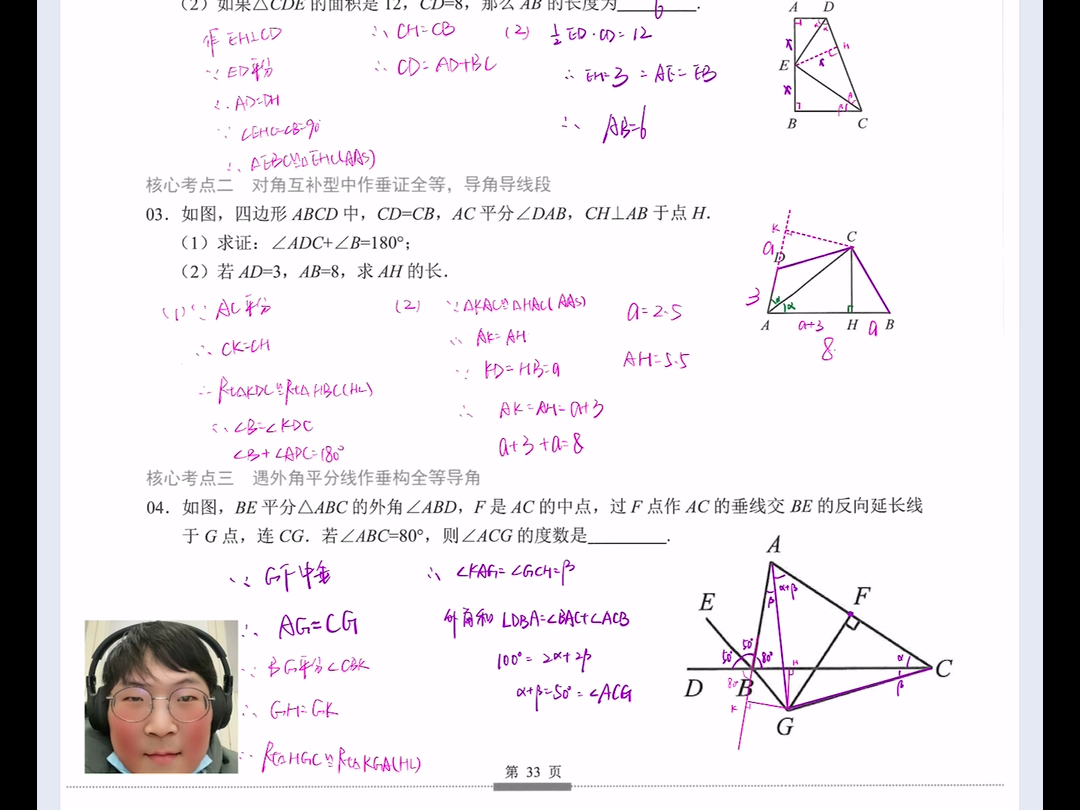 (2)如果△CDE 的面积是 12，CD=8，那么 AB 的长度为 6 .
作 EH⊥CD
∵ ED平分
∴ AD=DH
∵ ∠EHC=∠B=90°
∴ △EBC≌△EHC(AAS)
∴ CH=CB
∴ CD=AD+BC
(2) ½ED·CD=12
∴ EH=3=AE=EB
∴ AB=6
A D
H
E
x
x
x
B C
核心考点二 对角互补型中作垂证全等，导角导线段
03．如图，四边形 ABCD 中，CD=CB，AC 平分∠DAB，CH⊥AB 于点 H．
（1）求证：∠ADC+∠B=180°；
（2）若 AD=3，AB=8，求 AH 的长．
(1) ∵ AC平分
∴ CK=CH
∴ Rt△KDC≌Rt△HBC(HL)
∴ ∠B=∠KDC
∠B+∠ADC=180°
(2) ∵ △KAC≌△HAC(AAS)
∴ AK=AH
∵ KD=HB=a
∴ AK=AH=a+3
a+3+a=8
a=2.5
AH=5.5
K C
a D
3 α α
A a+3 H a B
8
核心考点三 遇外角平分线作垂构全等导角
04．如图，BE 平分△ABC 的外角∠ABD，F 是 AC 的中点，过 F 点作 AC 的垂线交 BE 的反向延长线
于 G 点，连 CG．若∠ABC=80°，则∠ACG 的度数是 .
∵ GF中垂
∴ AG=CG
∵ BG平分∠CBK
∴ GH=GK
∴ Rt△HGC≌Rt△KGA(HL)
∴ ∠KAG=∠GCH=β
外角和 ∠DBA=∠BAC+∠ACB
100°=2α+2β
α+β=50°=∠ACG
A
β α+β
E F
50° 50° 80° H α C
D 80° B β
K
G
第 33 页